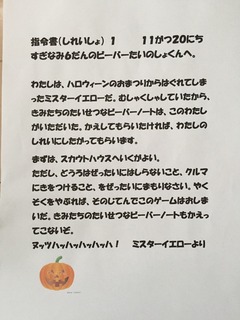 指令書(しれいしょ) 1 11がつ20にち
すぎなみ6だんのビーバーたいのしょくんへ。
わたしは、ハロウィーンのおまつりからはぐれてしま
ったミスターイエローだ。むしゃくしゃしていたから、
きみたちのたいせつなビーバーノートは、このわたし
がいただいた。かえしてもらいたければ、わたしの
しれいにしたがってもらいます。
まずは、スカウトハウスへいくがよい。
ただし、どうろはぜったいにはしらないこと、クルマ
にきをつけること、をぜったいにまもりなさい。やく
そくをやぶれば、そのじてんでこのゲームはおしま
いだ。きみたちのたいせつなビーバーノートもかえっ
てこないぞ。
ヌッツハッハッハッハッハ! ミスターイエローより